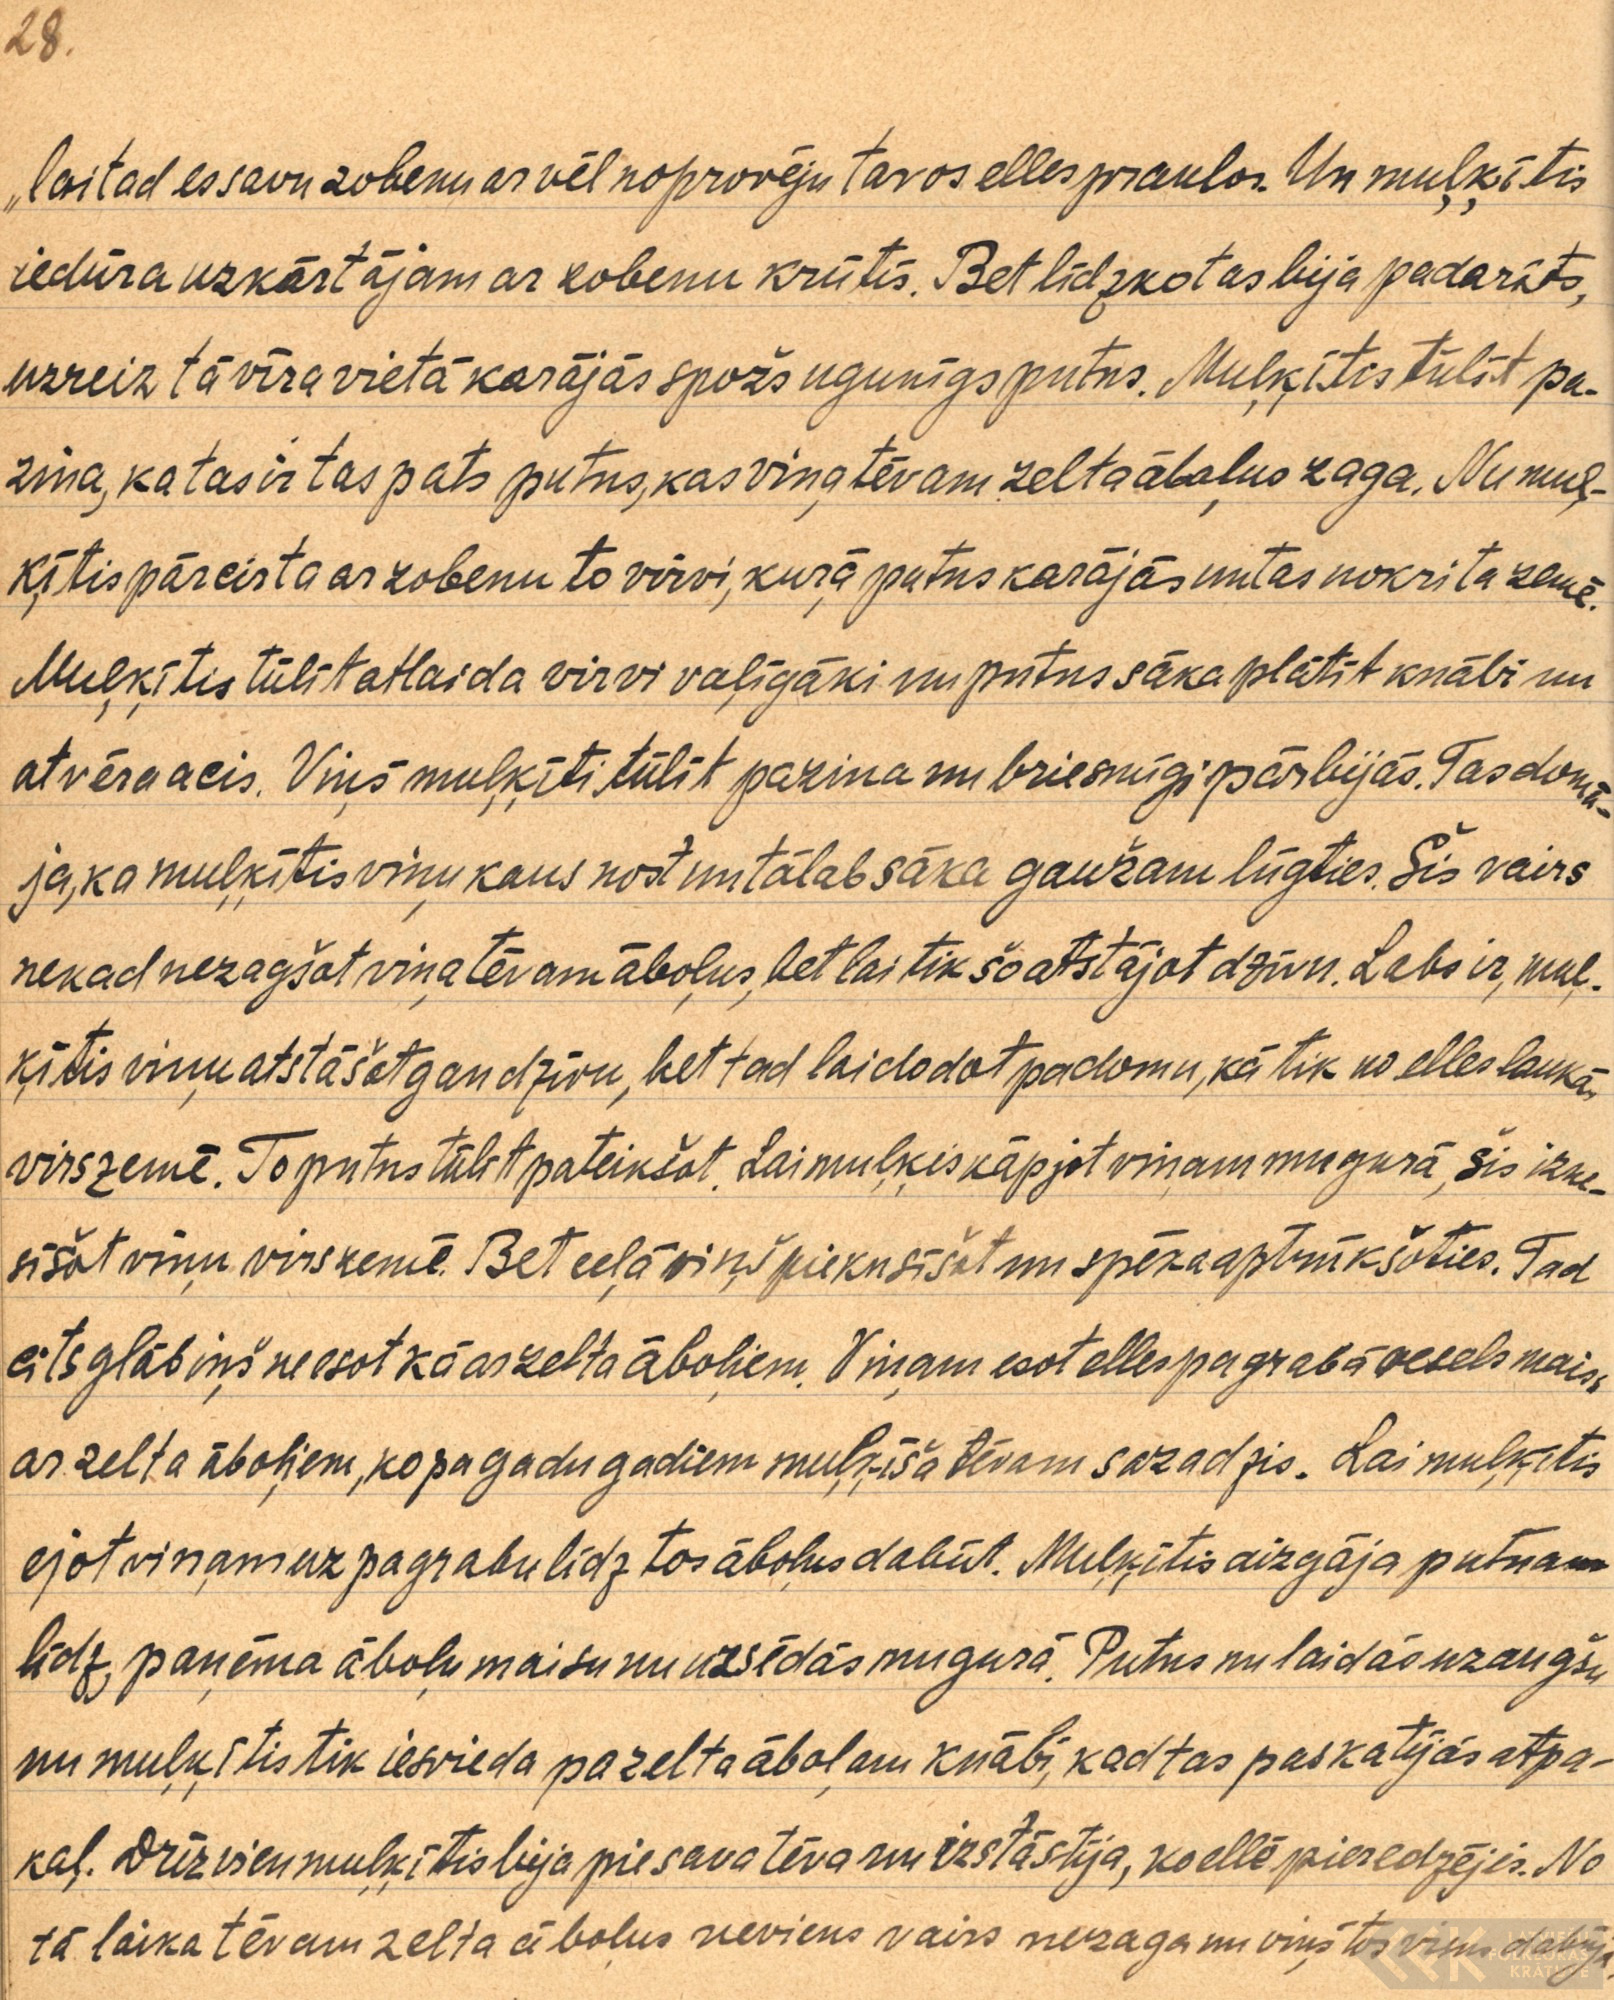 28.
„lai tad es savu zobenu ar vēl noprovēju tavos elles praulos. Un muļķītis
iedūra uzkārtājam ar zobenu krūtīs. Bet līdzko tas bija padarīts,
uzreiz tā vīra vietā karājās spožs ugunīgs putns. Muļķītis tūlīt pa-
zina, ka tas ir tas pats putns, kas viņa tēvam zelta āboļus zaga. Nu muļ-
ķītis pārcirta ar zobenu to virvi, kuŗā putns karājās un tas nokrita zemē.
Muļķītis tūlīt atlaida virvi vaļīgāki un putns sāka plātīt knābi un
atvēra acis. Viņš muļķīti tūlīt pazina un briesmīgi pārbijās. Tas domā-
ja, ka muļķītis viņu kaus nost un tālab sāka gaužam lūgties. Šis vairs
nekad nezagšot viņa tēvam āboļus, bet lai tik šo atstājot dzīvu. Labs ir, muļ-
ķītis viņu atstāšot gan dzīvu, bet tad lai dodot padomu, kā tik no elles laukā
virszemē. To putns tūlīt pateikšot. Lai muļķis kāpjot viņam mugurā, šis izne-
sīšot viņu virszemē. Bet ceļā viņš piekusīšot un spēka aptrūkšoties. Tad
cits glābiņš neesot kā ar zelta āboļiem. Viņam esot elles pagrabā vesels maiss
ar zelta āboļiem, ko pa gadu gadiem muļķīša tēvam sazadzis. Lai muļķītis
ejot viņam uz pagrabu līdz tos āboļus dabūt. Muļķītis aizgāja putnam
līdz, paņēma āboļu maisu un uzsēdās mugurā. Putns nu laidās uz augšu
un muļķītis tik iesvieda pa zelta āboļam knābī, kad tas paskatījās atpa-
kaļ. Drīz vien muļķītis bija pie sava tēva un izstāstīja, ko ellē pieredzējis. No
tā laika tēvam zelta āboļus neviens vairs nezaga un viņš tos visus dabūja